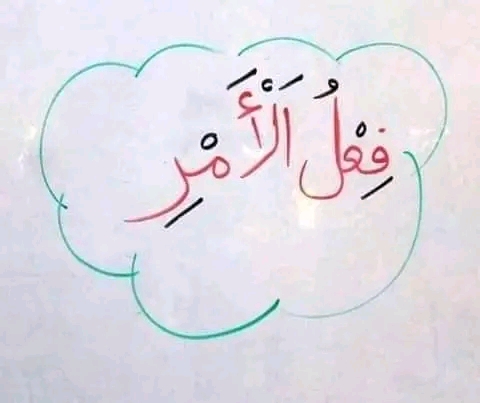 فِعْلُ اَلْأَمْرِ